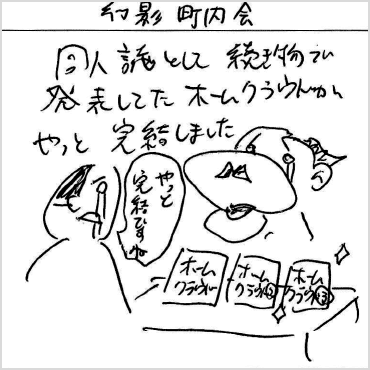 幻影 町内会
同人誌として 続き物で
発表してた ホームクラウンが
やっと 完結しました
やっと
完結ですね
ホーム
クラウン
ホーム
クラウン②
ホーム
クラウン③